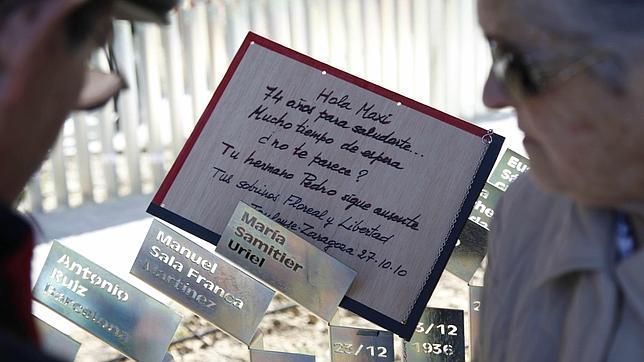 Hola Maxi
74 años para saludarte...
Mucho tiempo de espera
¿no te parece?
Tu hermano Pedro sigue ausente
Tus sobrinos Floreal y Libertad
Toulouse-Zaragoza 27-10.10
María
Samitier
Uriel
Manuel
Sala Franca
Martínez
Antonio
Ruiz
Barcelona
23/12
3/12
1936